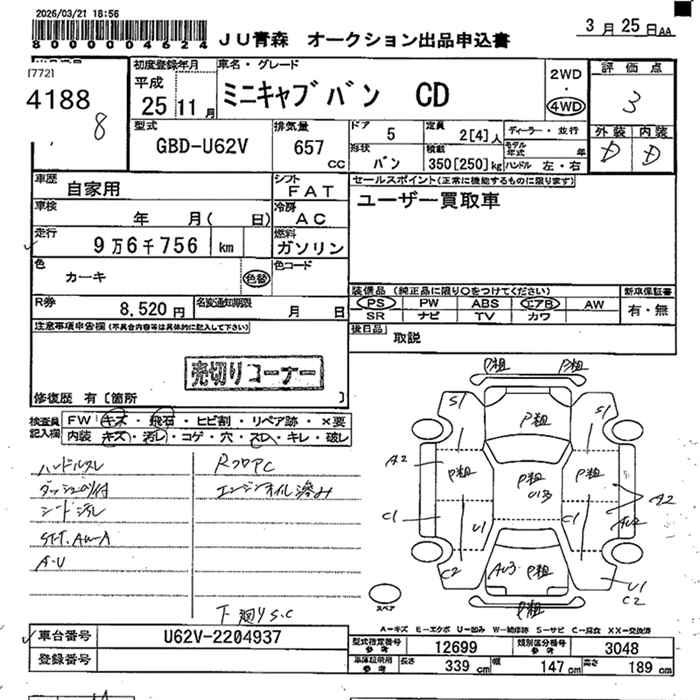 2026/03/21 18:56
8000004624
JU青森 オークション出品申込書
3月25日AA
[772]
4188
8
初度登録年月
平成
25 11月
車名・グレード
ミニキャブバン CD
2WD
・
4WD
評価点
3
外装 内装
D D
型式
GBD-U62V
排気量
657
CC
ドア 5
定員 2[4]人
ディーラー・並行
形状 バン
積載 350[250]kg
モデル年式 年
ハンドル 左・右
車歴
自家用
シフト
FAT
セールスポイント(正常に機能するものに限ります)
ユーザー買取車
車検
年 月( 日)
冷房
AC
走行
9万6千756 km
燃料
ガソリン
色
カーキ
色替
色コード
R券
8,520円
名変通知期限
月 日
装備品(純正品に限り○をつけてください)
新車保証書
PS PW ABS エアB AW
SR ナビ TV カワ
有・無
後日品
取説
注意事項申告欄(不具合内容等は具体的に記入して下さい)
売切りコーナー
修復歴 有[箇所 ]
検査員記入欄
FW キズ・飛石・ヒビ割・リペア跡・×要
内装 キズ・汚レ・コゲ・穴・スレ・キレ・破レ
ハンドルスレ
RフロアC
シート汚レ
エンジンオイル滲み
A-U
下廻りS.C
P粗 P粗
S1 P粗 S1
A2 P粗 P粗 P粗 A2
U13
C1 U1 C1
C2 AU3 P粗 U1
C2
P粗
スペア
A-キズ E-エクボ U-凹み W-補修跡 S-サビ C-腐食 XX-交換済
車台番号
U62V-2204937
登録番号
型式指定番号 参考
12699
類別区分番号 参考
3048
車庫証明用 参考
長さ 339cm
幅 147cm
高さ 189cm